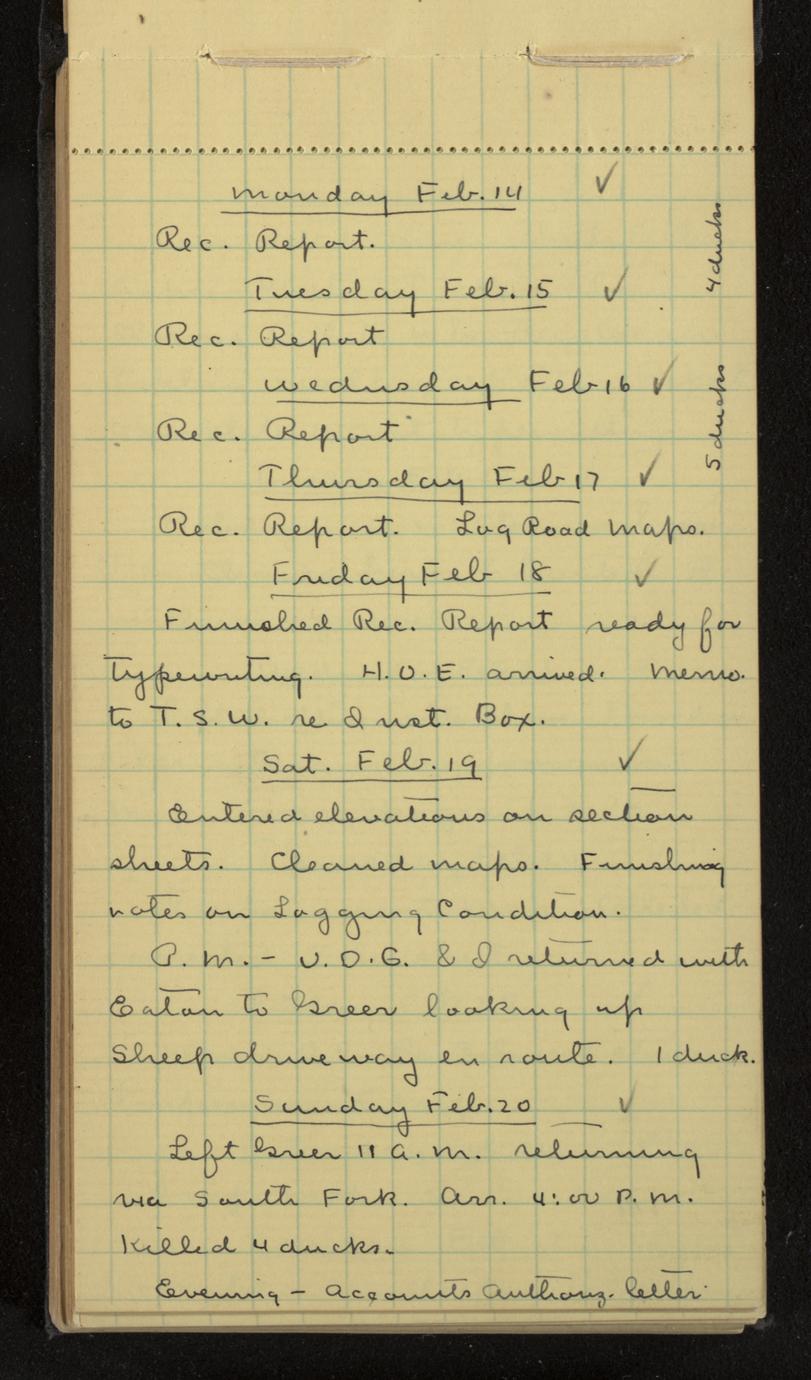 Monday Feb. 14 ✓
Rec. Report.
Tuesday Feb. 15 ✓
4 ducks
Rec. Report
Wednsday Feb 16 ✓
Rec. Report
5 ducks
Thursday Feb 17 ✓
Rec. Report. Log Road Maps.
Friday Feb 18 ✓
Finished Rec. Report ready for
typewriting. H.O.E. arrived. Memo.
to T.S.W. re Inst. Box.
Sat. Feb. 19 ✓
Entered elevations on section
sheets. Cleaned maps. Finishing
notes on Logging Condition.
P.M. - J.D.G. & I returned with
Eaton to Greer looking up
Sheep driveway en route. 1 duck.
Sunday Feb. 20 ✓
Left Greer 11 A.M. returning
via South Fork. Arr. 4:00 P.M.
Killed 4 ducks.
Evening - Accounts Authoriz. letter